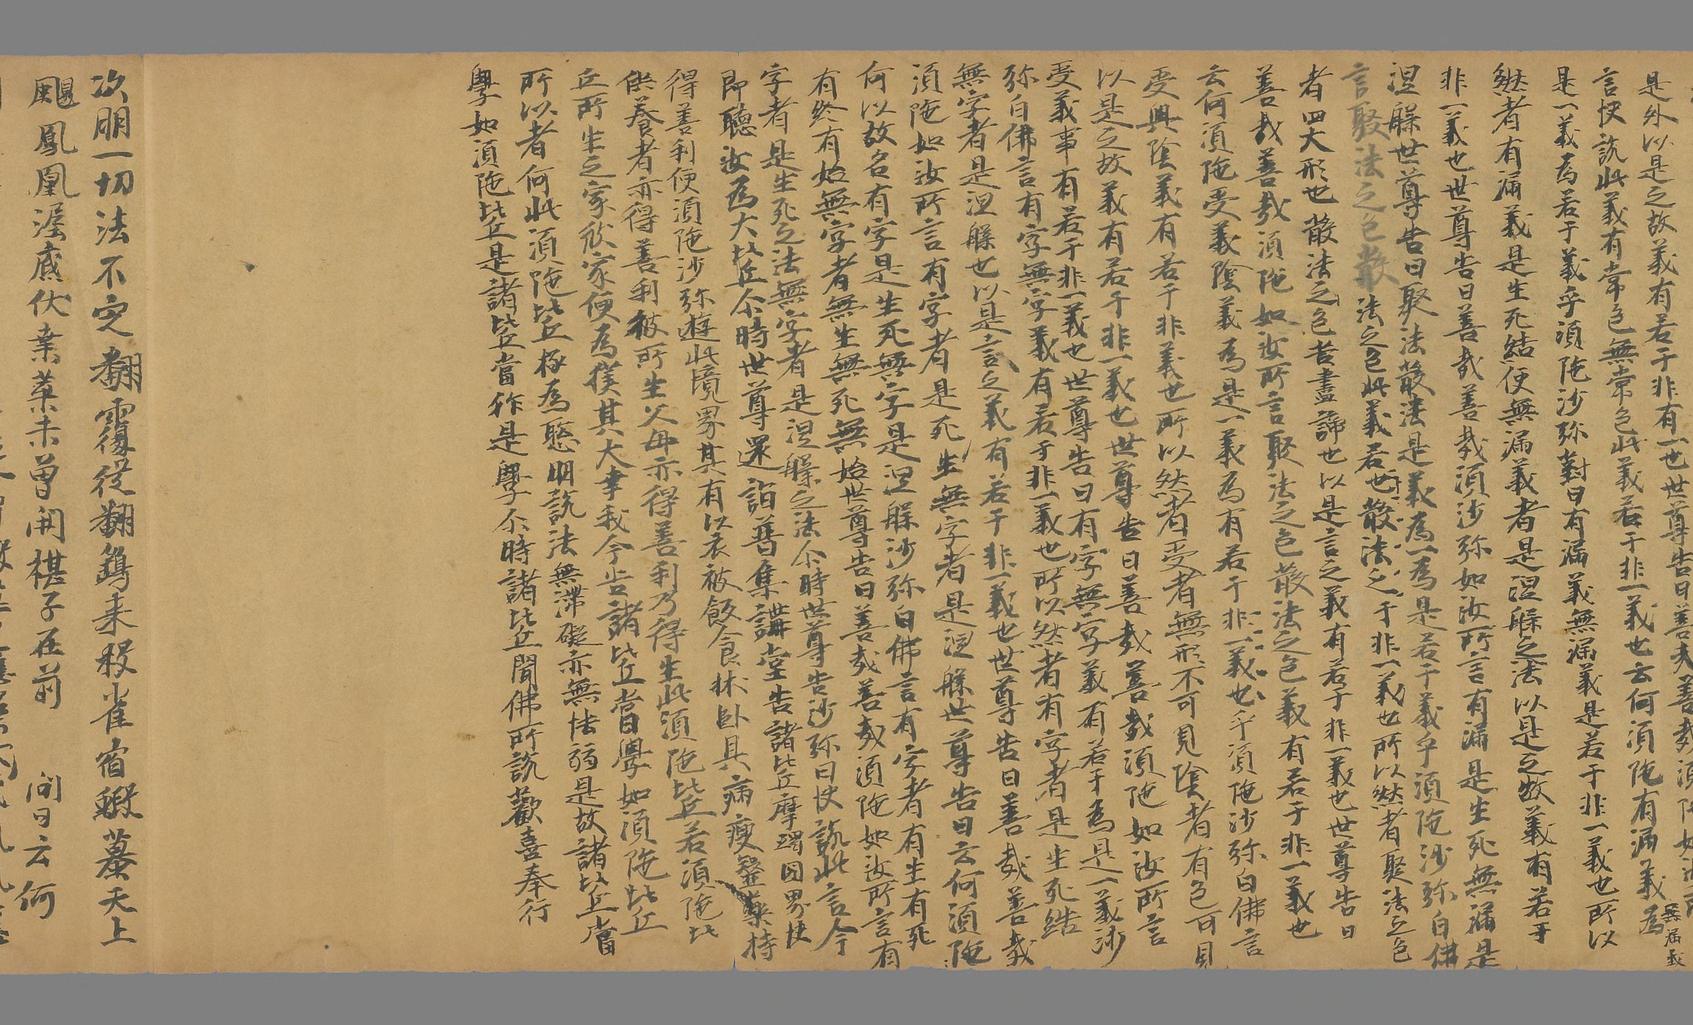 是外以是之故義有若干非有一也世尊告曰善哉善哉須陁如汝所
言快説此義有常色無常色此義若干非一義也云何須陁有漏義無漏義為
是一義為若干義乎須陁沙弥對曰有漏義無漏義是若干非一義也所以
然者有漏義是生死結使無漏義者是涅槃之法以是之故義有若干
非一義也世尊告曰善哉善哉須沙弥如汝所言有漏是生死無漏是
涅槃世尊告曰聚法散法是義為一為是若干義乎須陁沙弥白佛
言聚法之色散法之色此義若也散法之于非一義也所以然者聚法之色
者四大形也散法之色苦盡諦也以是言之義有若干非一義也世尊告曰
善哉善哉須陁如汝所言聚法之色散法之色義有若干非一義也
云何須陁受義陰義為是一義為有若干非一義也乎須陁沙弥白佛言
受與陰義有若干非義也所以然者受者無形不可見陰者有色可見
以是之故義有若干非一義也世尊告曰善哉善哉須陁如汝所言
受義事有若干非一義也世尊告曰有字無字義有若干為是一義沙
弥白佛言有字無字義有若干非一義也所以然者有字者是生死結
無字者是涅槃也以是言之義有若干非一義也世尊告曰善哉善哉
須陁如汝所言有字者是死生無字者是涅槃世尊告曰云何須陁
何以故名有字是生死無字是涅槃沙弥白佛言有字者有生有死
有終有始無字者無生無死無始世尊告曰善哉善哉須陁如汝所言有
字者是生死之法無字者是涅槃之法尒時世尊告沙弥曰快説此言今
即聽汝為大比丘尒時世尊還詣普集講堂告諸比丘摩竭國界快
得善利使須陁沙弥遊此境界其有以衣被飯食牀卧具病瘦醫藥持
供養者亦得善利彼所生父母亦得善利乃得生此須陁比丘若須陁比
丘所生之家彼家便為獲其大幸我今告諸比丘當學如須陁比丘
所以者何此須陁比丘極為聡明説法無滯礙亦無怯弱是故諸比丘當
學如須陁比丘是諸比丘當作是學尒時諸比丘聞佛所説歡喜奉行
次明一切法不定翻覆從翻鷄来投雀宿蝦蟇天上
颺鳳凰渥底伏葉落未曾開棋子在前 問曰云何